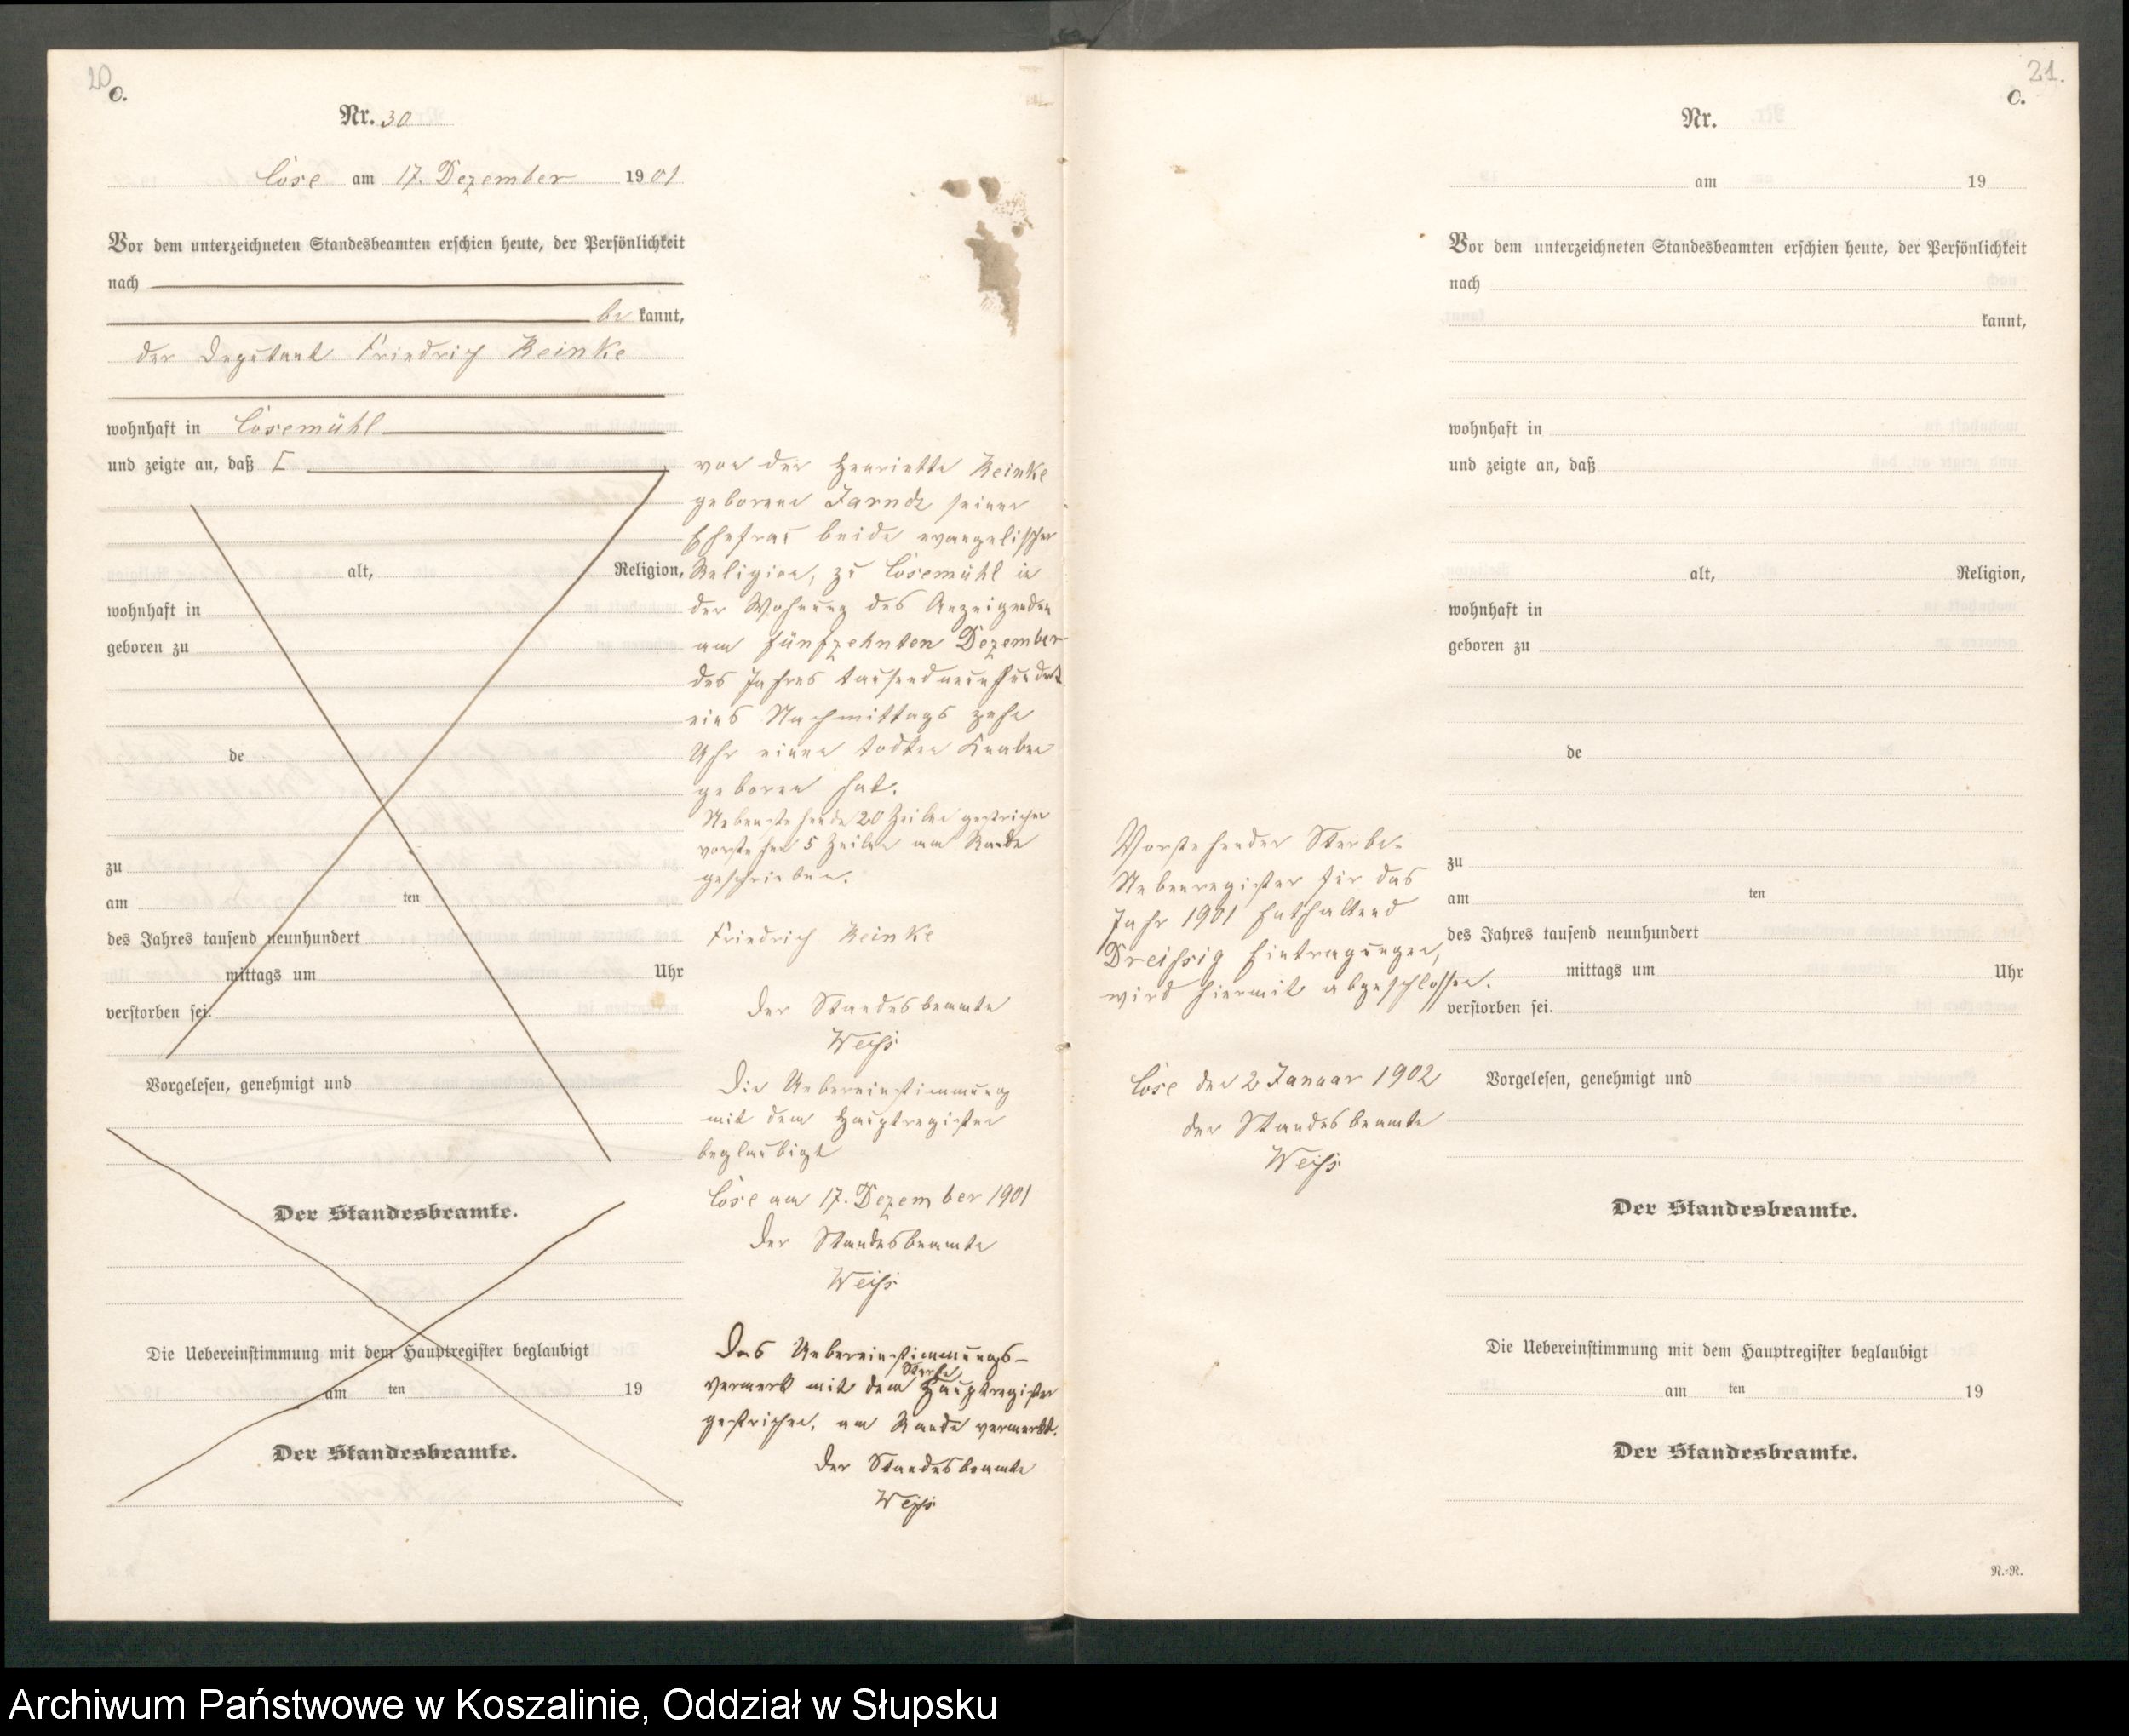 20
C.
Nr. 30
Cöse am 17. Dezember 1901
Vor dem unterzeichneten Standesbeamten erschien heute, der Persönlichkeit
nach
be kannt,
der Deputant Friedrich Reinke
wohnhaft in Cösemühl
und zeigte an, daß [
alt, Religion,
wohnhaft in
geboren zu
de
zu
am ten
des Jahres tausend neunhundert
mittags um Uhr
verstorben sei.
Vorgelesen, genehmigt und
Der Standesbeamte.
Die Uebereinstimmung mit dem Hauptregister beglaubigt
am ten 19
Der Standesbeamte.
von der Henriette Reinke
geborene seiner
Ehefrau beide evangelischer
Religion, zu Cösemühl in
der Wohnung des Anzeigenden
am fünfzehnten Dezember
des Jahres tausendneunhundert
eins Nachmittags zehn
Uhr einen todten Knaben
geboren hat.
Nebenstehende 20 Zeilen gestrichen
vorstehend 5 Zeilen am Rande
geschrieben.
Friedrich Reinke
Der Standesbeamte
Weiß
Die Uebereinstimmung
mit dem Hauptregister
beglaubigt
Cöse am 17. Dezember 1901
Der Standesbeamte
Weiß
Das Uebereinstimmungs-
Sterbe
vermerk mit dem Hauptregister
gestrichen, am Rande vermerkt.
Der Standesbeamte
Weiß
21.
C.
Nr.
am 19
Vor dem unterzeichneten Standesbeamten erschien heute, der Persönlichkeit
nach
kannt,
wohnhaft in
und zeigte an, daß
alt, Religion,
wohnhaft in
geboren zu
de
zu
am ten
des Jahres tausend neunhundert
mittags um Uhr
verstorben sei.
Vorgelesen, genehmigt und
Der Standesbeamte.
Die Uebereinstimmung mit dem Hauptregister beglaubigt
am ten 19
Der Standesbeamte.
N.-R.
Vorstehender Sterbe-
Nebenregister für das
Jahr 1901 enthaltend
Dreißig Eintragungen,
wird hiermit abgeschlossen.
Cöse den 2 Januar 1902
der Standesbeamte
Weiß
Archiwum Państwowe w Koszalinie, Oddział w Słupsku